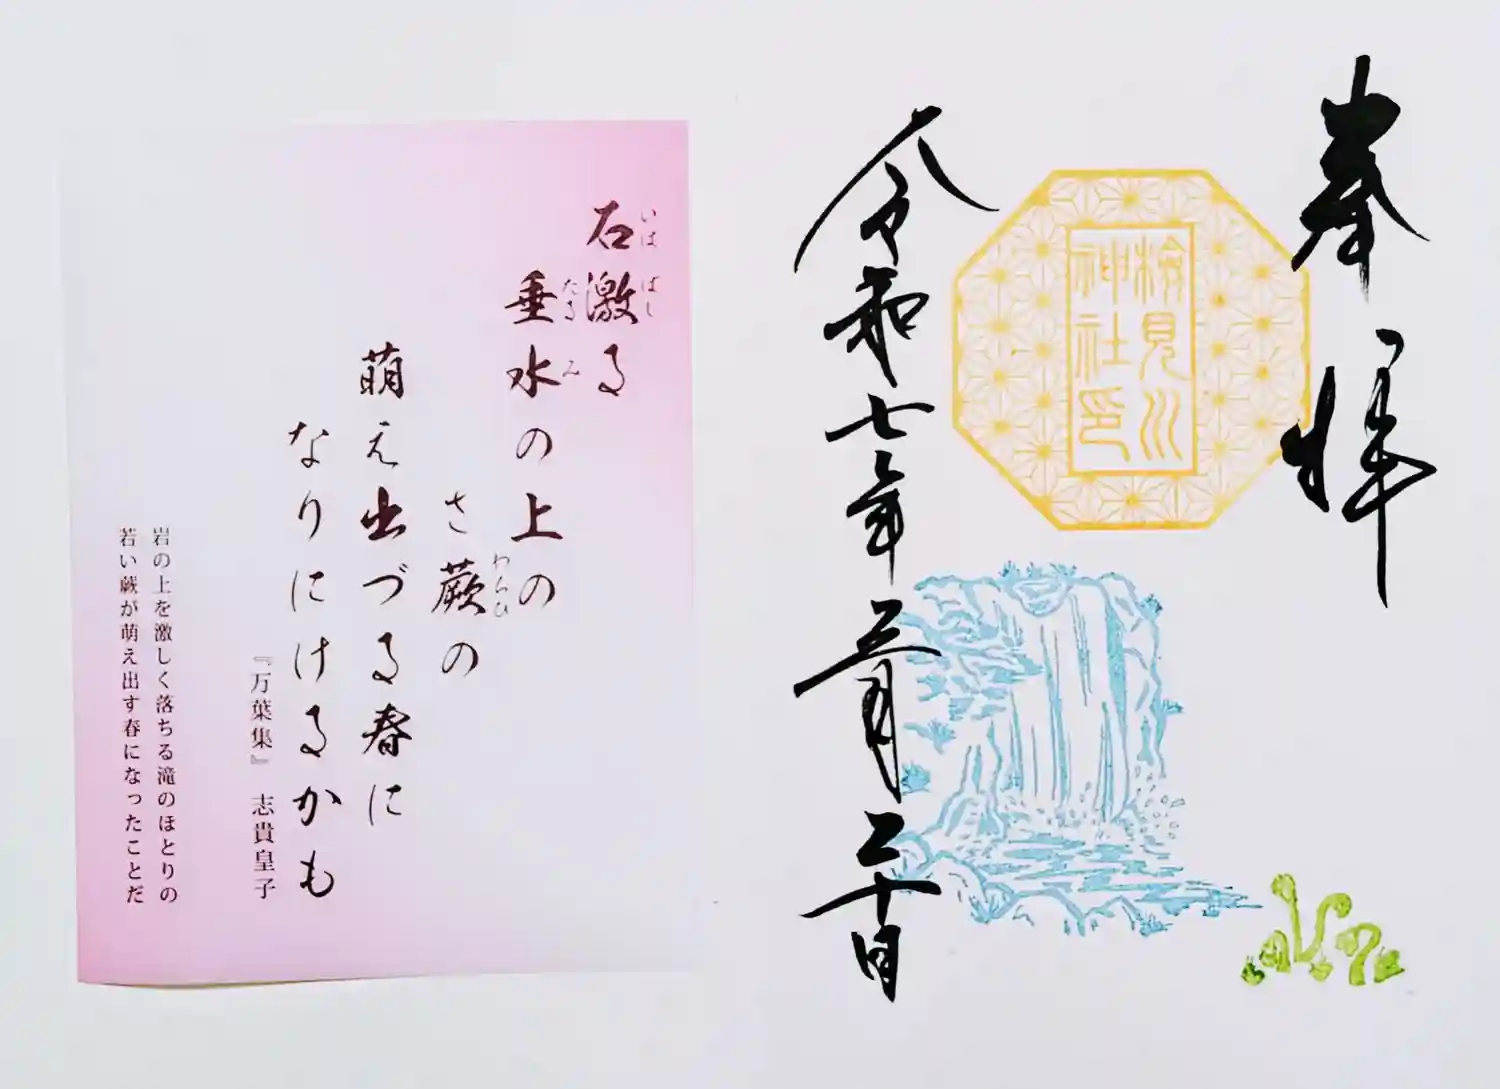 奉拝
検見川
神社印
令和七年三月二十日
石激る
いは ばし
垂水の上の
たる み
さ蕨の
わらび
萌え出づる春に
なりにけるかも
『万葉集』 志貴皇子
岩の上を激しく落ちる滝のほとりの
若い蕨が萌え出す春になったことだ